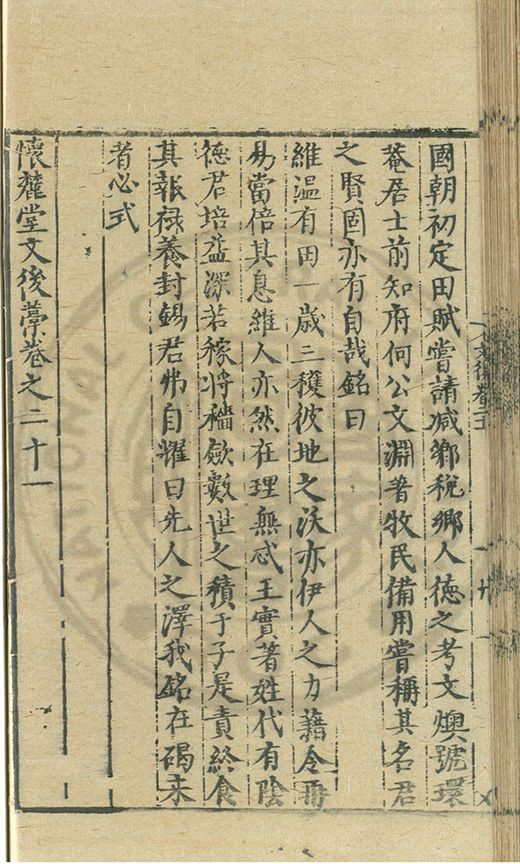 國朝初定田賦嘗請减鄉税鄉人徳之考文燠號環
菴居士前知府何公文淵著牧民備用嘗稱其名君
之賢固亦有自哉銘曰
維温有田一歲三穫彼地之沃亦伊人之力藉令再
易當倍其息維人亦然在理無忒王實著姓代有陰
徳君培益深若稼將穡歛數世之積于子是責終食
其報禄養封錫君弗自耀曰先人之澤我銘在碣来
者必式
懷麓堂文後藁卷之二十一